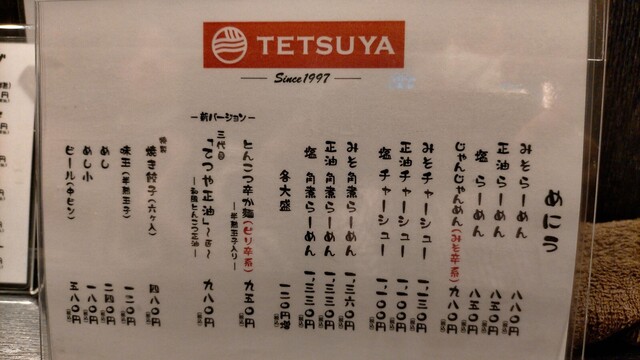 TETSUYA
Since1997
めにう
みそらーめん 八八〇円
正油らーめん 八五〇円
塩 らーめん 八五〇円
じゃんじゃんめん(みそ辛系) 九八〇円
みそチャーシュー 一、一三〇円
正油チャーシュー 一、一〇〇円
塩 チャーシュー 一、一〇〇円
みそ角煮らーめん 一、三六〇円
正油 角煮らーめん 一、三三〇円
塩 角煮らーめん 一、三三〇円
各大盛 一二〇円増
とんこつ辛か麺(ピリ辛系) 九五〇円
―半熟玉子入り―
―新バージョン―
三代目
「てつや正油」
九八〇円
特製
焼き餃子(六ヶ入) 四八〇円
味玉(半熟玉子) 一二〇円
めし 二四〇円
めし小 一八〇円
ビール(中ビン) 五八〇円